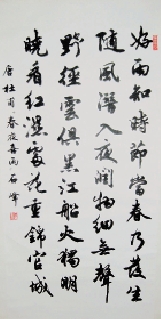 好雨知時節當春乃發生
隨風潛入夜潤物細無聲
野徑雲俱黑江船火獨明
曉看紅濕處花重錦官城
唐杜甫春夜喜雨